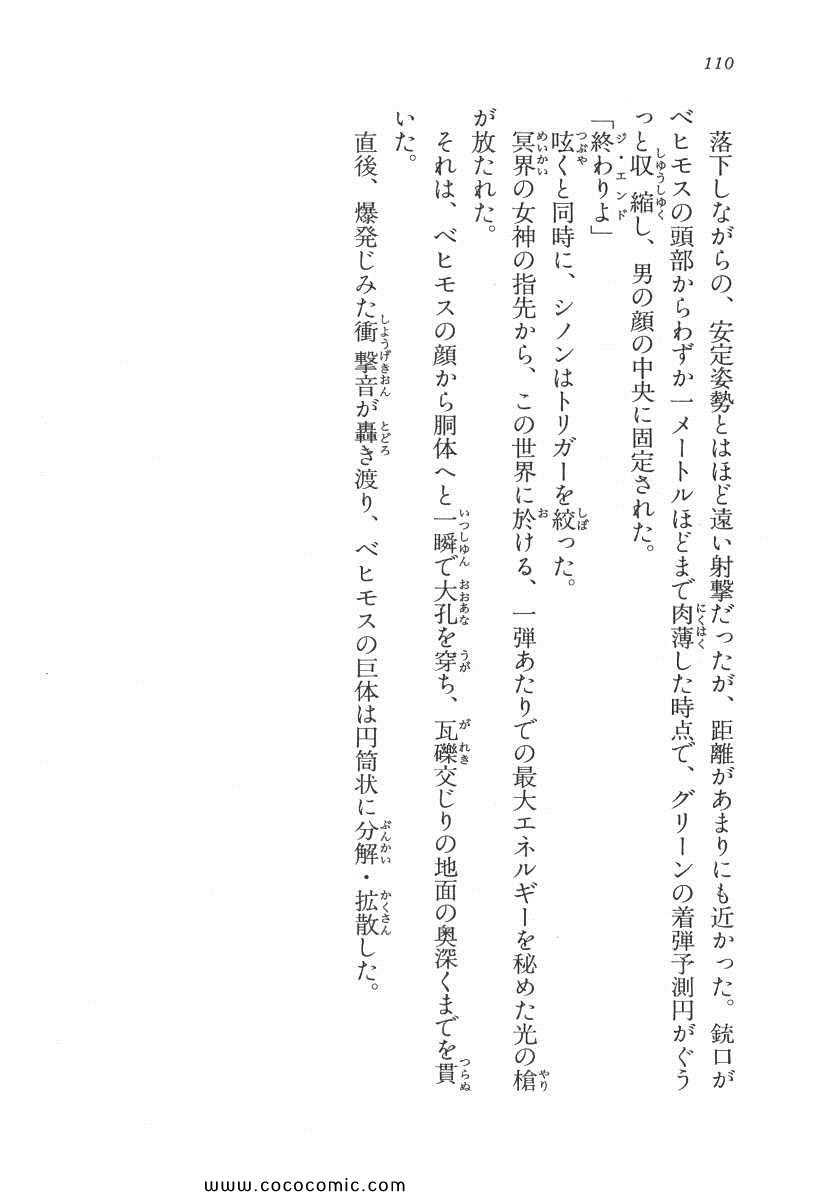 110
落下しながらの、安定姿勢とはほど遠い射撃だったが、距離があまりにも近かった。銃口が
ベヒモスの頭部からわずか一メートルほどまで肉薄した時点で、グリーンの着弾予測円がぐう
っと収縮し、男の顔の中央に固定された。
「終わりよ」
呟くと同時に、シノンはトリガーを絞った。
冥界の女神の指先から、この世界に於ける、一弾あたりでの最大エネルギーを秘めた光の槍
が放たれた。
それは、ベヒモスの顔から胴体へと一瞬で大孔を穿ち、瓦礫交じりの地面の奥深くまでを貫
いた。
直後、爆発じみた衝撃音が轟き渡り、ベヒモスの巨体は円筒状に分解・拡散した。
www.cococomic.com